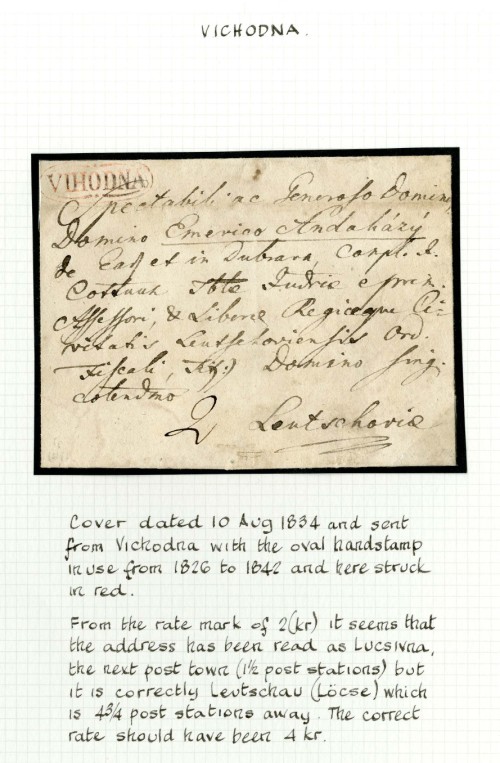 VICHODNA.
VIHODNA
Spectabili ac Generoso Domino,
Domino Emerico Andaházÿ
de Ead et in Dubrava, Compl. I.
Cottuum Judriæ e prim.
Assessori, & Liberæ Regiæque Ci-
vitatis Leutschoviensis Ord.
Fiscali, Tit:) Domino sing.
Colendmo
2 Leutschoviæ
Cover dated 10 Aug 1834 and sent
from Vichodna with the oval handstamp
in use from 1826 to 1842 and here struck
in red.
From the rate mark of 2(kr) it seems that
the address has been read as Lucsivna,
the next post town (1½ post stations) but
it is correctly Leutschau (Löcse) which
is 4¾ post stations away. The correct
rate should have been 4 kr.